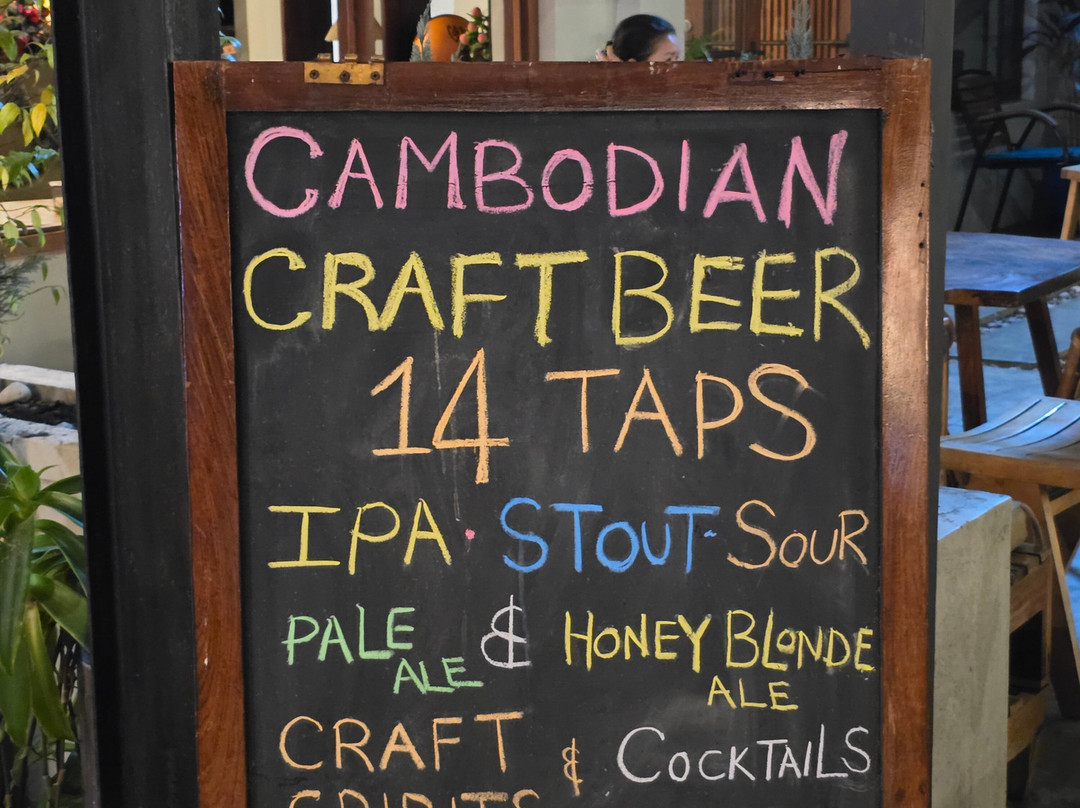 CAMBODIAN
CRAFT BEER
14 TAPS
IPA · STOUT - SOUR
PALE ALE & HONEY BLONDE ALE
CRAFT & COCKTAILS
SPIRITS